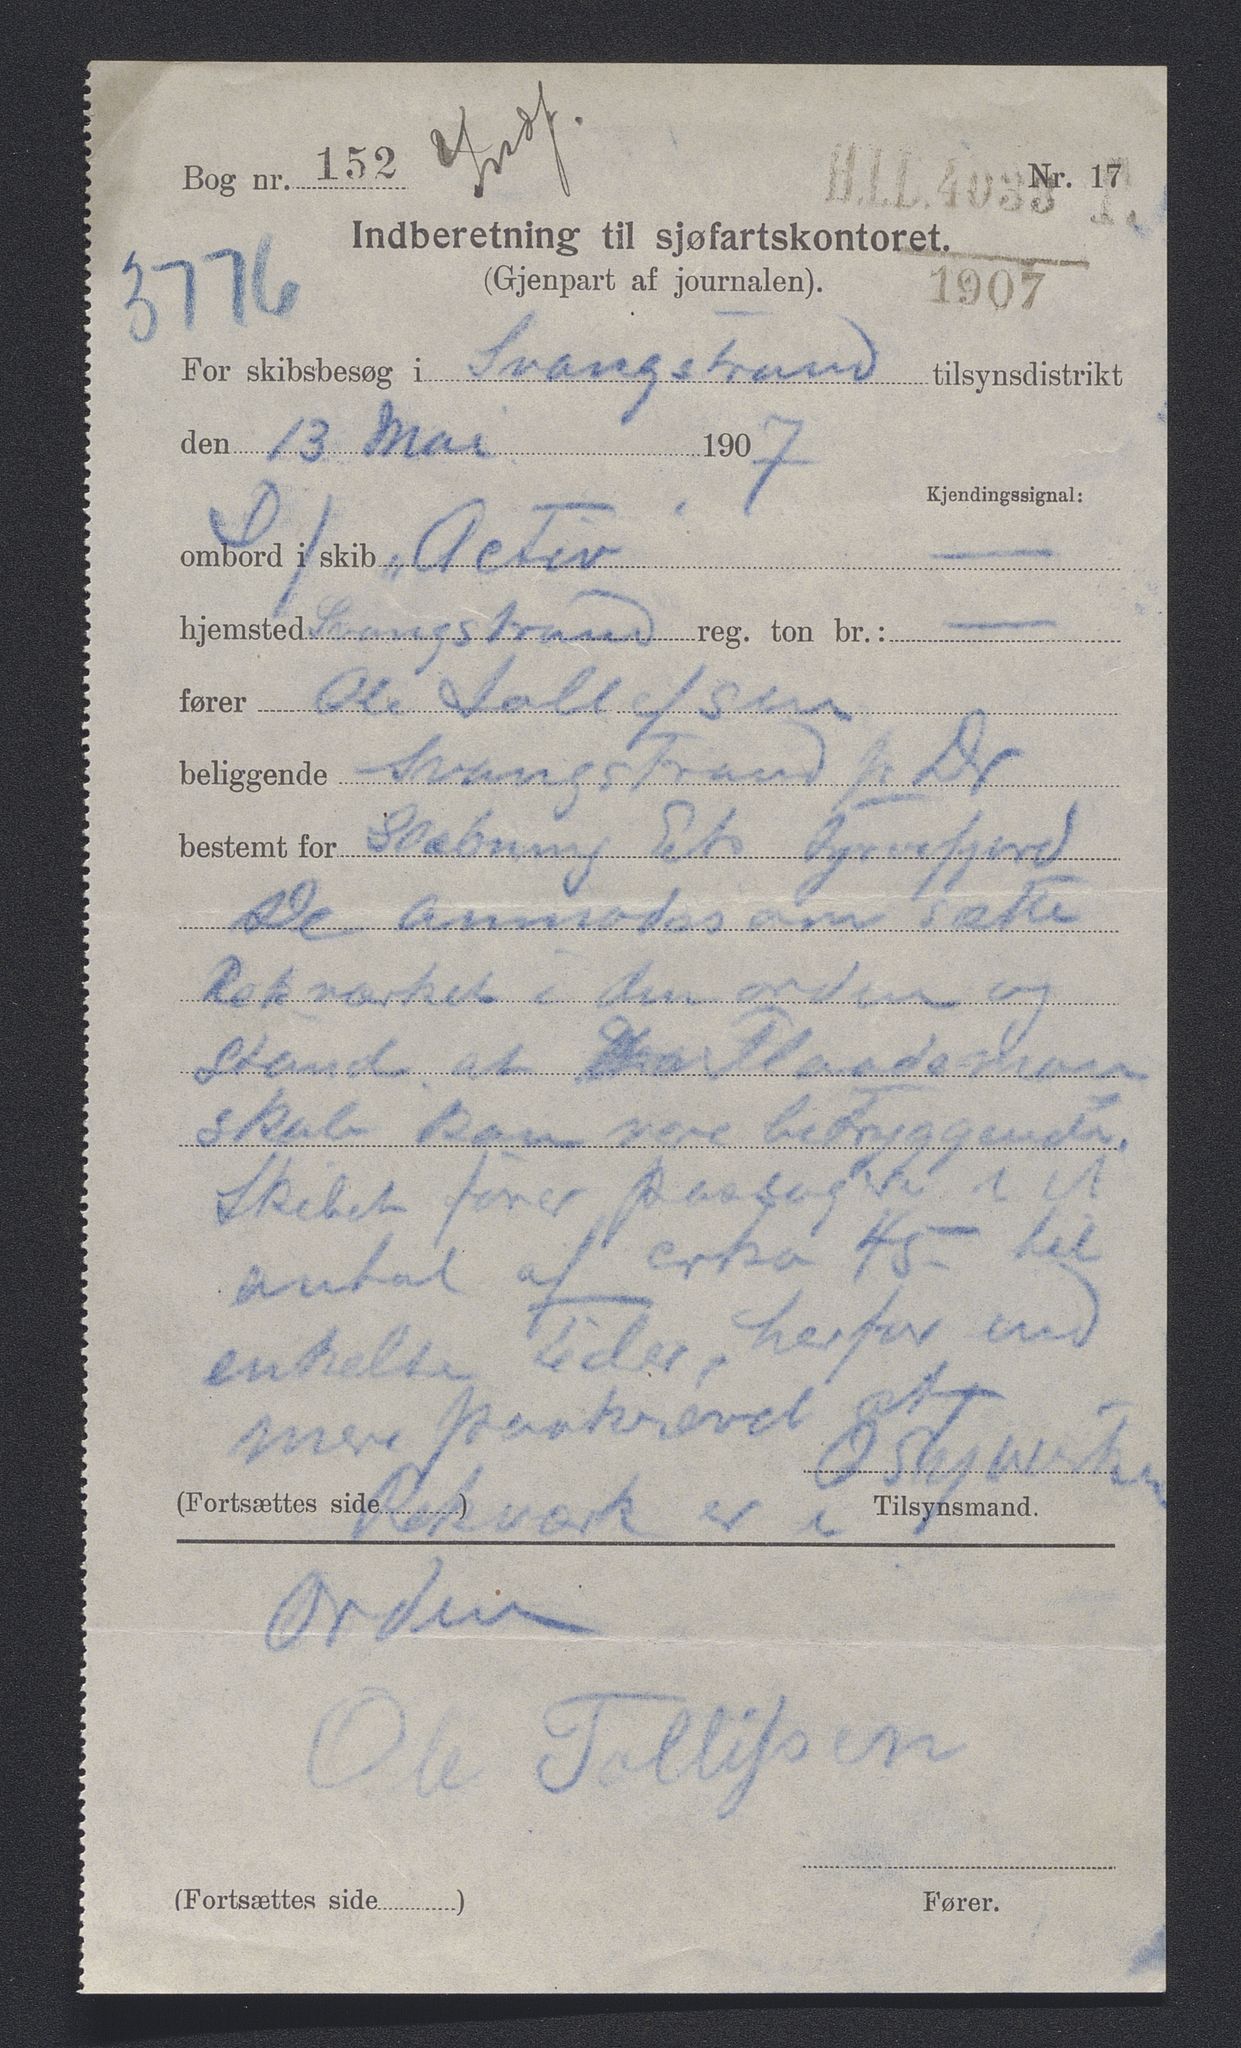 Bog nr. 152
Nr. 17
H.I.I. 4033 T.
1907
Indberetning til sjøfartskontoret.
(Gjenpart af journalen).
3776
For skibsbesøg i Svangstrand tilsynsdistrikt
den 13 Mai 1907
Kjendingssignal:
D/
ombord i skib „Activ" —
hjemsted Svangstrand reg. ton br.: —
fører Ole Tollefsen
beliggende Svangstrand pr Dr
bestemt for Tyrifjord
De anmodes om sætte
Rekværket i den orden og
stand at Flaademan
skab kan være betryggende.
Skibet fører passagere i et
antal af cirka 45 til
enkelte Tider, herfor end
mere paakrævd at
(Fortsættes side ) Rekværk er i
Tilsynsmand.
Orden
Ole Tollifsen
(Fortsættes side )
Fører.